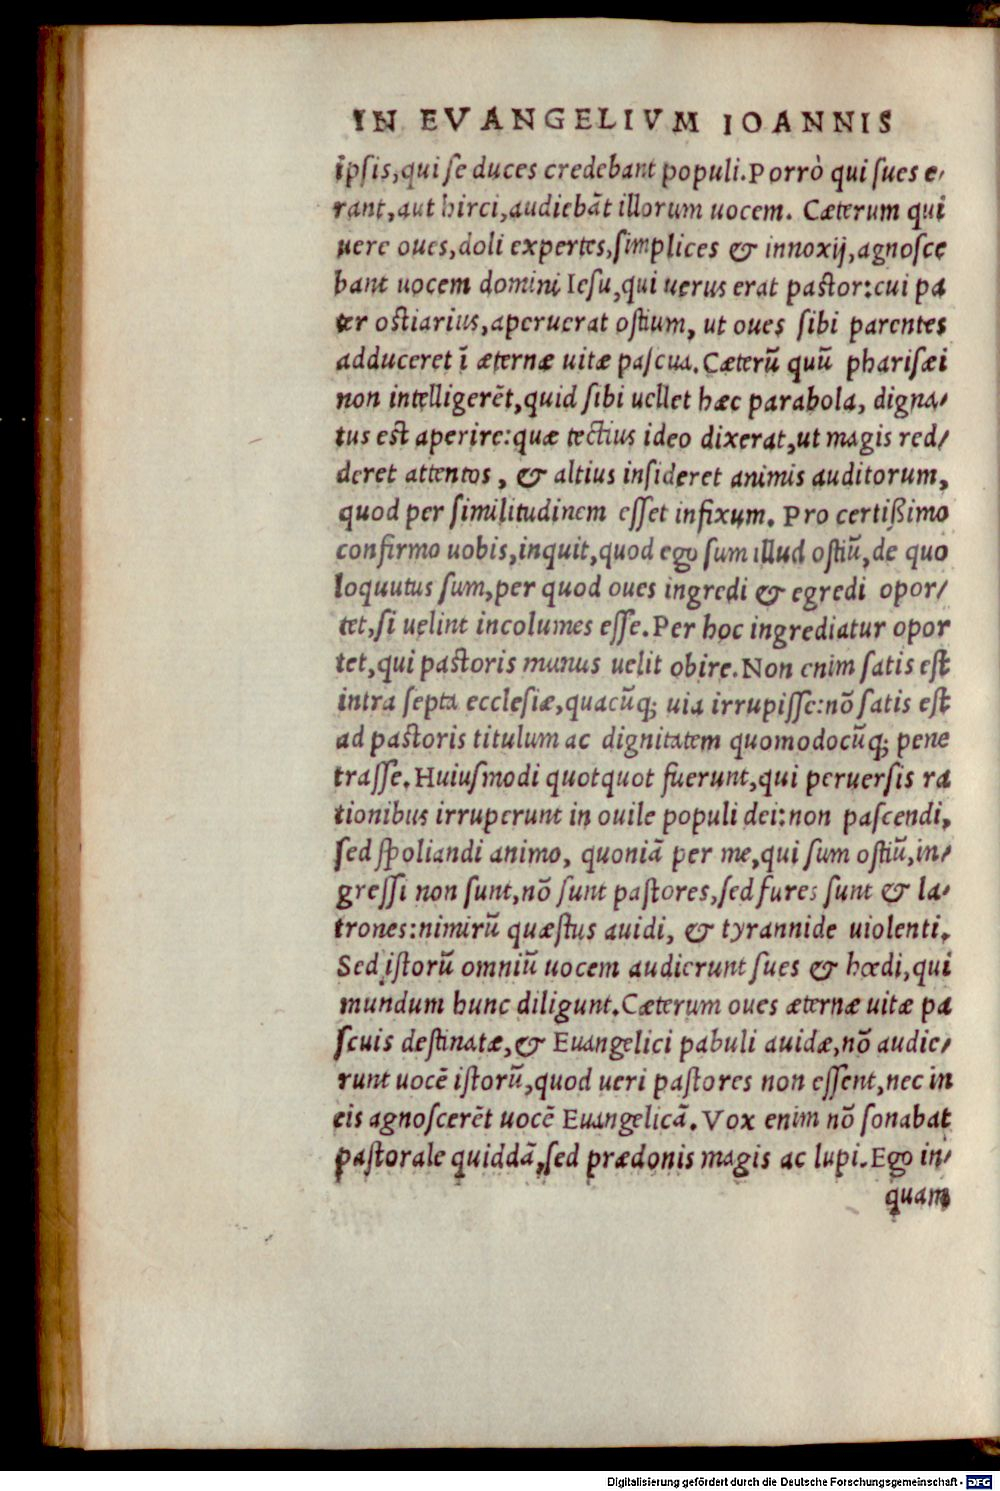 IN EVANGELIVM IOANNIS
ipsis,qui se duces credebant populi.Porrò qui sues e-
rant,aut hirci,audiebãt illorum uocem. Cæterum qui
uere oues,doli expertes,simplices & innoxij,agnosce
bant uocem domini Iesu,qui uerus erat pastor:cui pa
ter ostiarius,aperuerat ostium, ut oues sibi parentes
adduceret ĩ æternæ uitæ pascua.Cæterũ quũ pharisæi
non intelligerẽt,quid sibi uellet hæc parabola, digna-
tus est aperire:quæ tectius ideo dixerat,ut magis red-
deret attentos, & altius insideret animis auditorum,
quod per similitudinem esset infixum. Pro certißimo
confirmo uobis,inquit,quod ego sum illud ostiũ,de quo
loquutus sum,per quod oues ingredi & egredi opor-
tet,si uelint incolumes esse.Per hoc ingrediatur opor
tet,qui pastoris munus uelit obire.Non enim satis est
intra septa ecclesiæ,quacũq; uia irrupisse:nõ satis est
ad pastoris titulum ac dignitatem quomodocũq; pene
trasse.Huiusmodi quotquot fuerunt,qui peruersis ra
tionibus irruperunt in ouile populi dei:non pascendi,
sed spoliandi animo, quoniã per me,qui sum ostiũ,in-
gressi non sunt,nõ sunt pastores,sed fures sunt & la-
trones:nimirũ quæstus auidi, & tyrannide uiolenti.
Sed istorũ omniũ uocem audierunt sues & hœdi,qui
mundum hunc diligunt.Cæterum oues æternæ uitæ pa
scuis destinatæ,& Euangelici pabuli auidæ,nõ audie-
runt uocẽ istorũ,quod ueri pastores non essent,nec in
eis agnoscerẽt uocẽ Euangelicã.Vox enim nõ sonabat
pastorale quiddã,sed prædonis magis ac lupi.Ego in-
quam
Digitalisierung gefördert durch die Deutsche Forschungsgemeinschaft - DFG